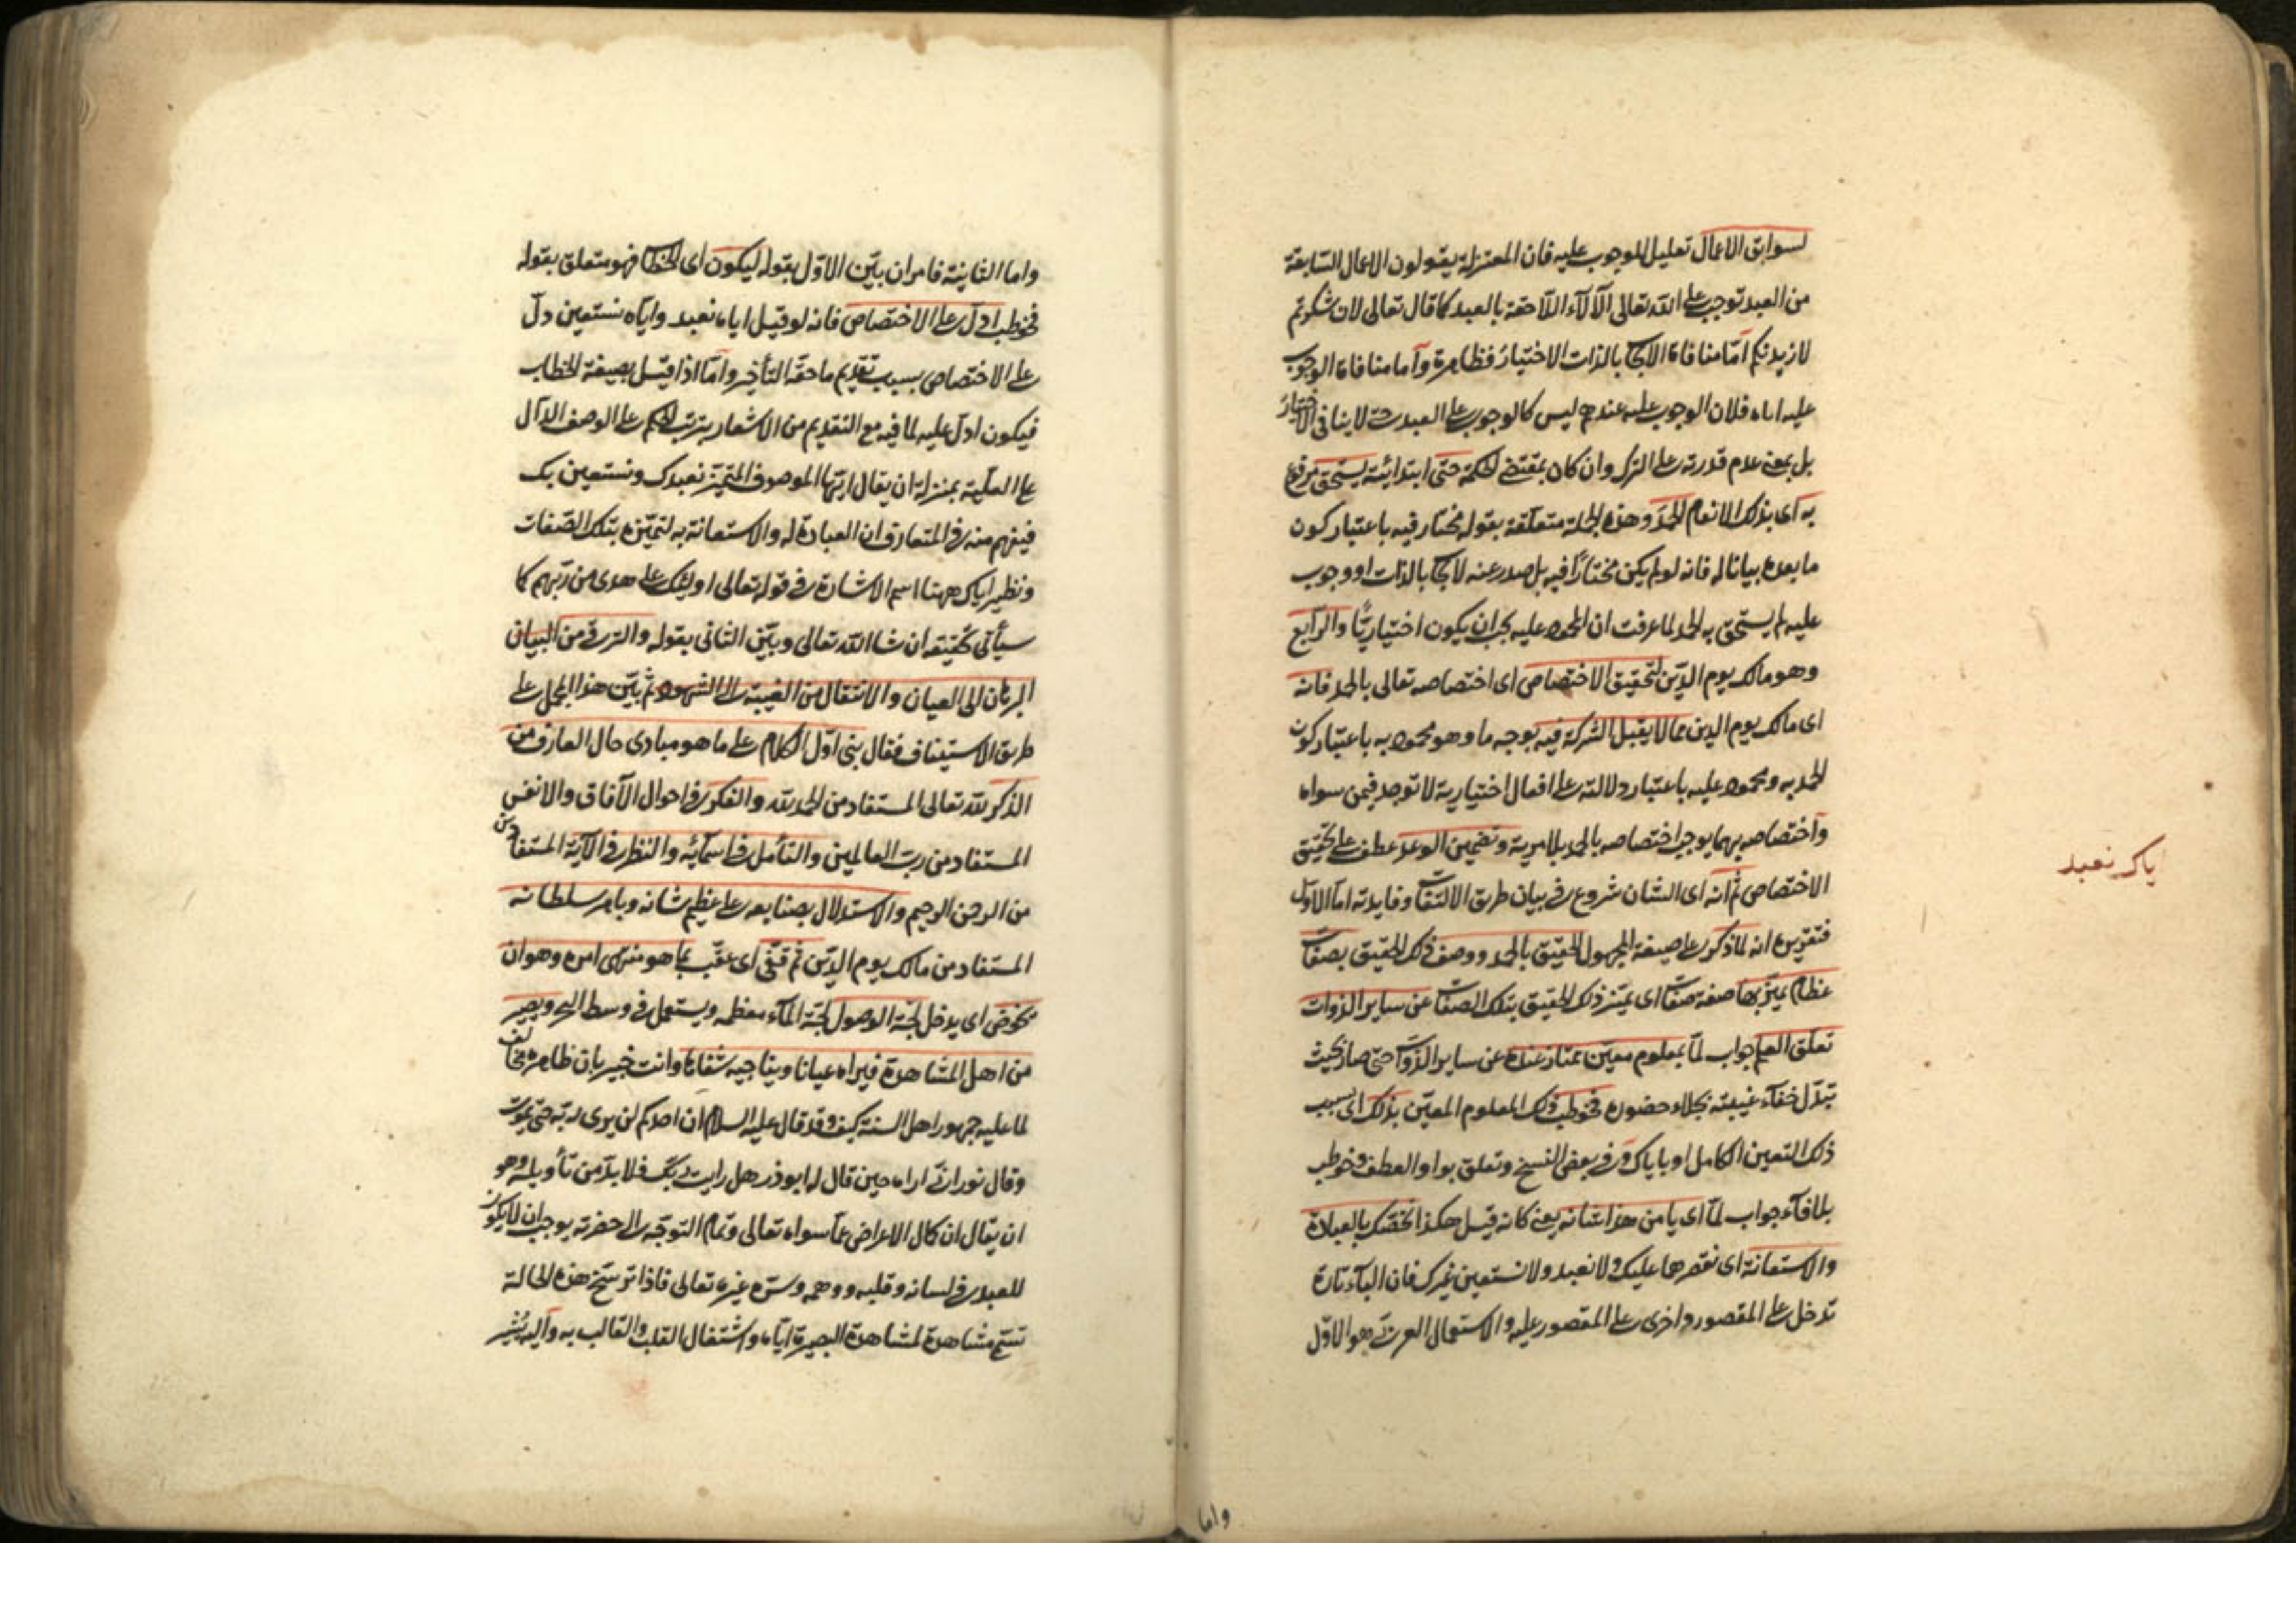 لسوابق الاعمال تعليل للوجوب عليه فان المعتزلة يقولون الاعمال السابقة
من العبد توجب على الله تعالى الآلاء اللاحقة بالعبد كما قال تعالى لان شكرتم
لازيدنكم امّا منافاة الايجاب بالذات الاختيار فظاهرة وأما منافاة الوجوب
عليه اياه فلان الوجوب عليه عندهم ليس كالوجوب على العبد حتى لا ينافى الاختيار
بل بمعنى عدم قدرته على الترك وان كان بمقتضى الحكمة حتّى ابتدائية يستحق مرفوع
به اى بذلك الانعام الحمدَ وهذه الجملة متعلقة بقوله مختار فيه باعتبار كون
ما بعده بيانا له فانه لو لم يكن مختارًا فيه بل صدر عنه لايجاب بالذات او وجوب
عليه لم يستحق به الحمد لما عرفت ان المحمود عليه يجب ان يكون اختياريًّا والرّابع
وهو مالك يوم الدّين لتحقيق الاختصاص اى اختصاصه تعالى بالحمد فانه
اى مالك يوم الدين مما لا يقبل الشركة فيه بوجه ما وهو محمود به باعتبار كون
الحمد به ومحمود عليه باعتبار دلالته على افعال اختيارية لا توجد فيمن سواه
واختصاصه بهما يوجب اختصاصه بالحمد بلا مرية وتضمين الوعد عطف على تحقيق
الاختصاص ثم انه اى الشان شروع فى بيان طرق الالتفات وفايدته امّا الاوّل
فتقريره انه لما ذكر على صيغة المجهول الحقيق بالحمد ووصف ذلك الحقيق بصفات
عظام تميّز بها صفة صفات اى تميّز ذلك الحقيق بتلك الصفات عن ساير الذوات
تعلق العلم جواب لمّا بمعلوم معيّن ممتاز عنده عن ساير الذّوات حتى صار بحيث
تبدّل خفآء غيبته بجلاء حضوره خوطب ذلك المعلوم المعيّن بذلك اى بسبب
ذلك التعين الكامل او باياك وفى بعض النسخ وتعلق بواو العطف فخوطب
بلا فآء جواب لمّا اى يا من هذا شانه يعنى كانه قيل هكذا نخصّك بالعبادة
والاستعانة اى نقصرها عليك ولا نعبد ولا نستعين غيرك فان البآء تارة
تدخل على المقصور واخرى على المقصور عليه والاستعمال العربى هو الاوّل
ياك نعبد
واما
واما الثانية فامران بيّن الاوّل بقوله ليكون اى الخطاب فهو متعلق بقوله
فخوطب ادلّ على الاختصاص فانه لو قيل اياه نعبد واياه نستعين دلّ
على الاختصاص بسبب تقديم ما حقّه التأخير وامّا اذا قيل بصيغة الخطاب
فيكون ادلّ عليه لما فيه مع التقديم من الاشعار بترتب الحكم على الوصف الدآل
على العلّية بمنزلة ان يقال ايّها الموصوف المتميّز نعبدك ونستعين بك
فيفهم منه فى المتعارف ان العبادة له والاستعانة به لتميّزه بتلك الصّفات
ونظير اياك ههنا اسم الاشارة فى قوله تعالى اولئك على هدى من ربّهم كما
سيأتى تحقيقه ان شا الله تعالى وبيّن الثانى بقوله والترقى من البيان
البرهان الى العيان والانتقال من الغيبة الى الشهود ثم بيّن هذا المجمل على
طريق الاستيناف فقال بنى اوّل الكلام على ما هو مبادى حال العارف من
الذكر لله تعالى المستفاد من الحمد لله والفكر فى احوال الآفاق والانفس
المستفاد من ربّ العالمين والتأمل فى اسمآئه والنظر فى الآية المستفادين
من الرحمن الرحيم والاستدلال بصنايعه على عظيم شانه وباهر سلطانه
المستفاد من مالك يوم الدّين ثم قفّى اى عقّب بما هو منتهى امره وهو ان
يخوض اى يدخل لجّة الوصول لجّة المآء معظمه ويستعمل فى وسط البحر ويصير
من اهل المشاهدة فيراه عيانا ويناجيه شفاها وانت خبير بان ظاهره مخالف
لما عليه جمهور اهل السنة كيف وقد قال عليه السلام ان احدكم لن يرى ربّه حتى يموت
وقال نورانىّ اراه حين قال له ابوذر هل رايت ربّك فلا بدّ من تأويله وهو
ان يقال ان كمال الاعراض عمّا سواه تعالى وتمام التوجّه الى حضرته يوجب ان لا يكون
للعبد فى لسانه وقلبه ووهمه وسرّه غيره تعالى فاذا ترسّخ هذه الحالة
تسمّى مشاهدة لمشاهدة البصيرة ايّاه واشتغال القلب والقالب به وآليه يُشير